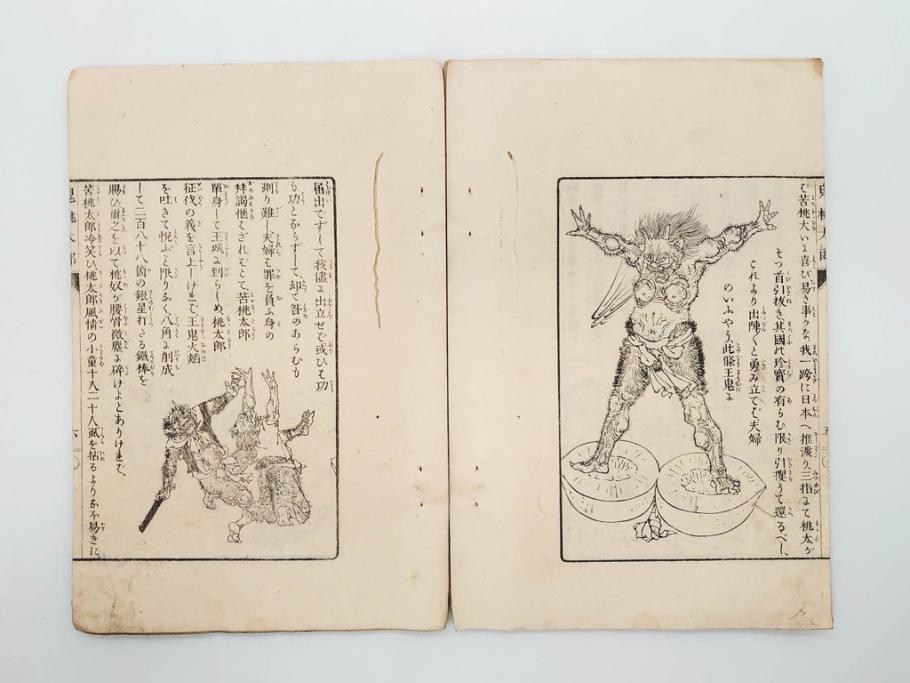 む苦桃大いに喜び易き事かな、我一跨に日本へ推渡り、三指にて桃太が
そつ首引拔き、其國の珍寶の有らむ限り引攫うて還るべし、
これより出陣くと勇み立てば夫婦
のいふやう、此條王鬼に
届出でずして我儘に出立せば、或ひは功
も功とならずして、却て咎のあらむも
測り難し、夫婦は罪を負ふ身の
拜謁愜はざればとて、苦桃太郎
單身して王城に到らしめ、桃太郎
征伐の義を言上しければ、王鬼火焔
を吐きて悅ぶこと限りなく、八角に削成
して二百八十八箇の銀星打たる鐵棒を
賜ひ、爾之を以て桃奴が腰骨微塵に碎けよとありければ、
苦桃太郎冷笑ひ、桃太郎風情の小童十人二十人虱を拈るよりなほ易きに、
鬼桃太郎